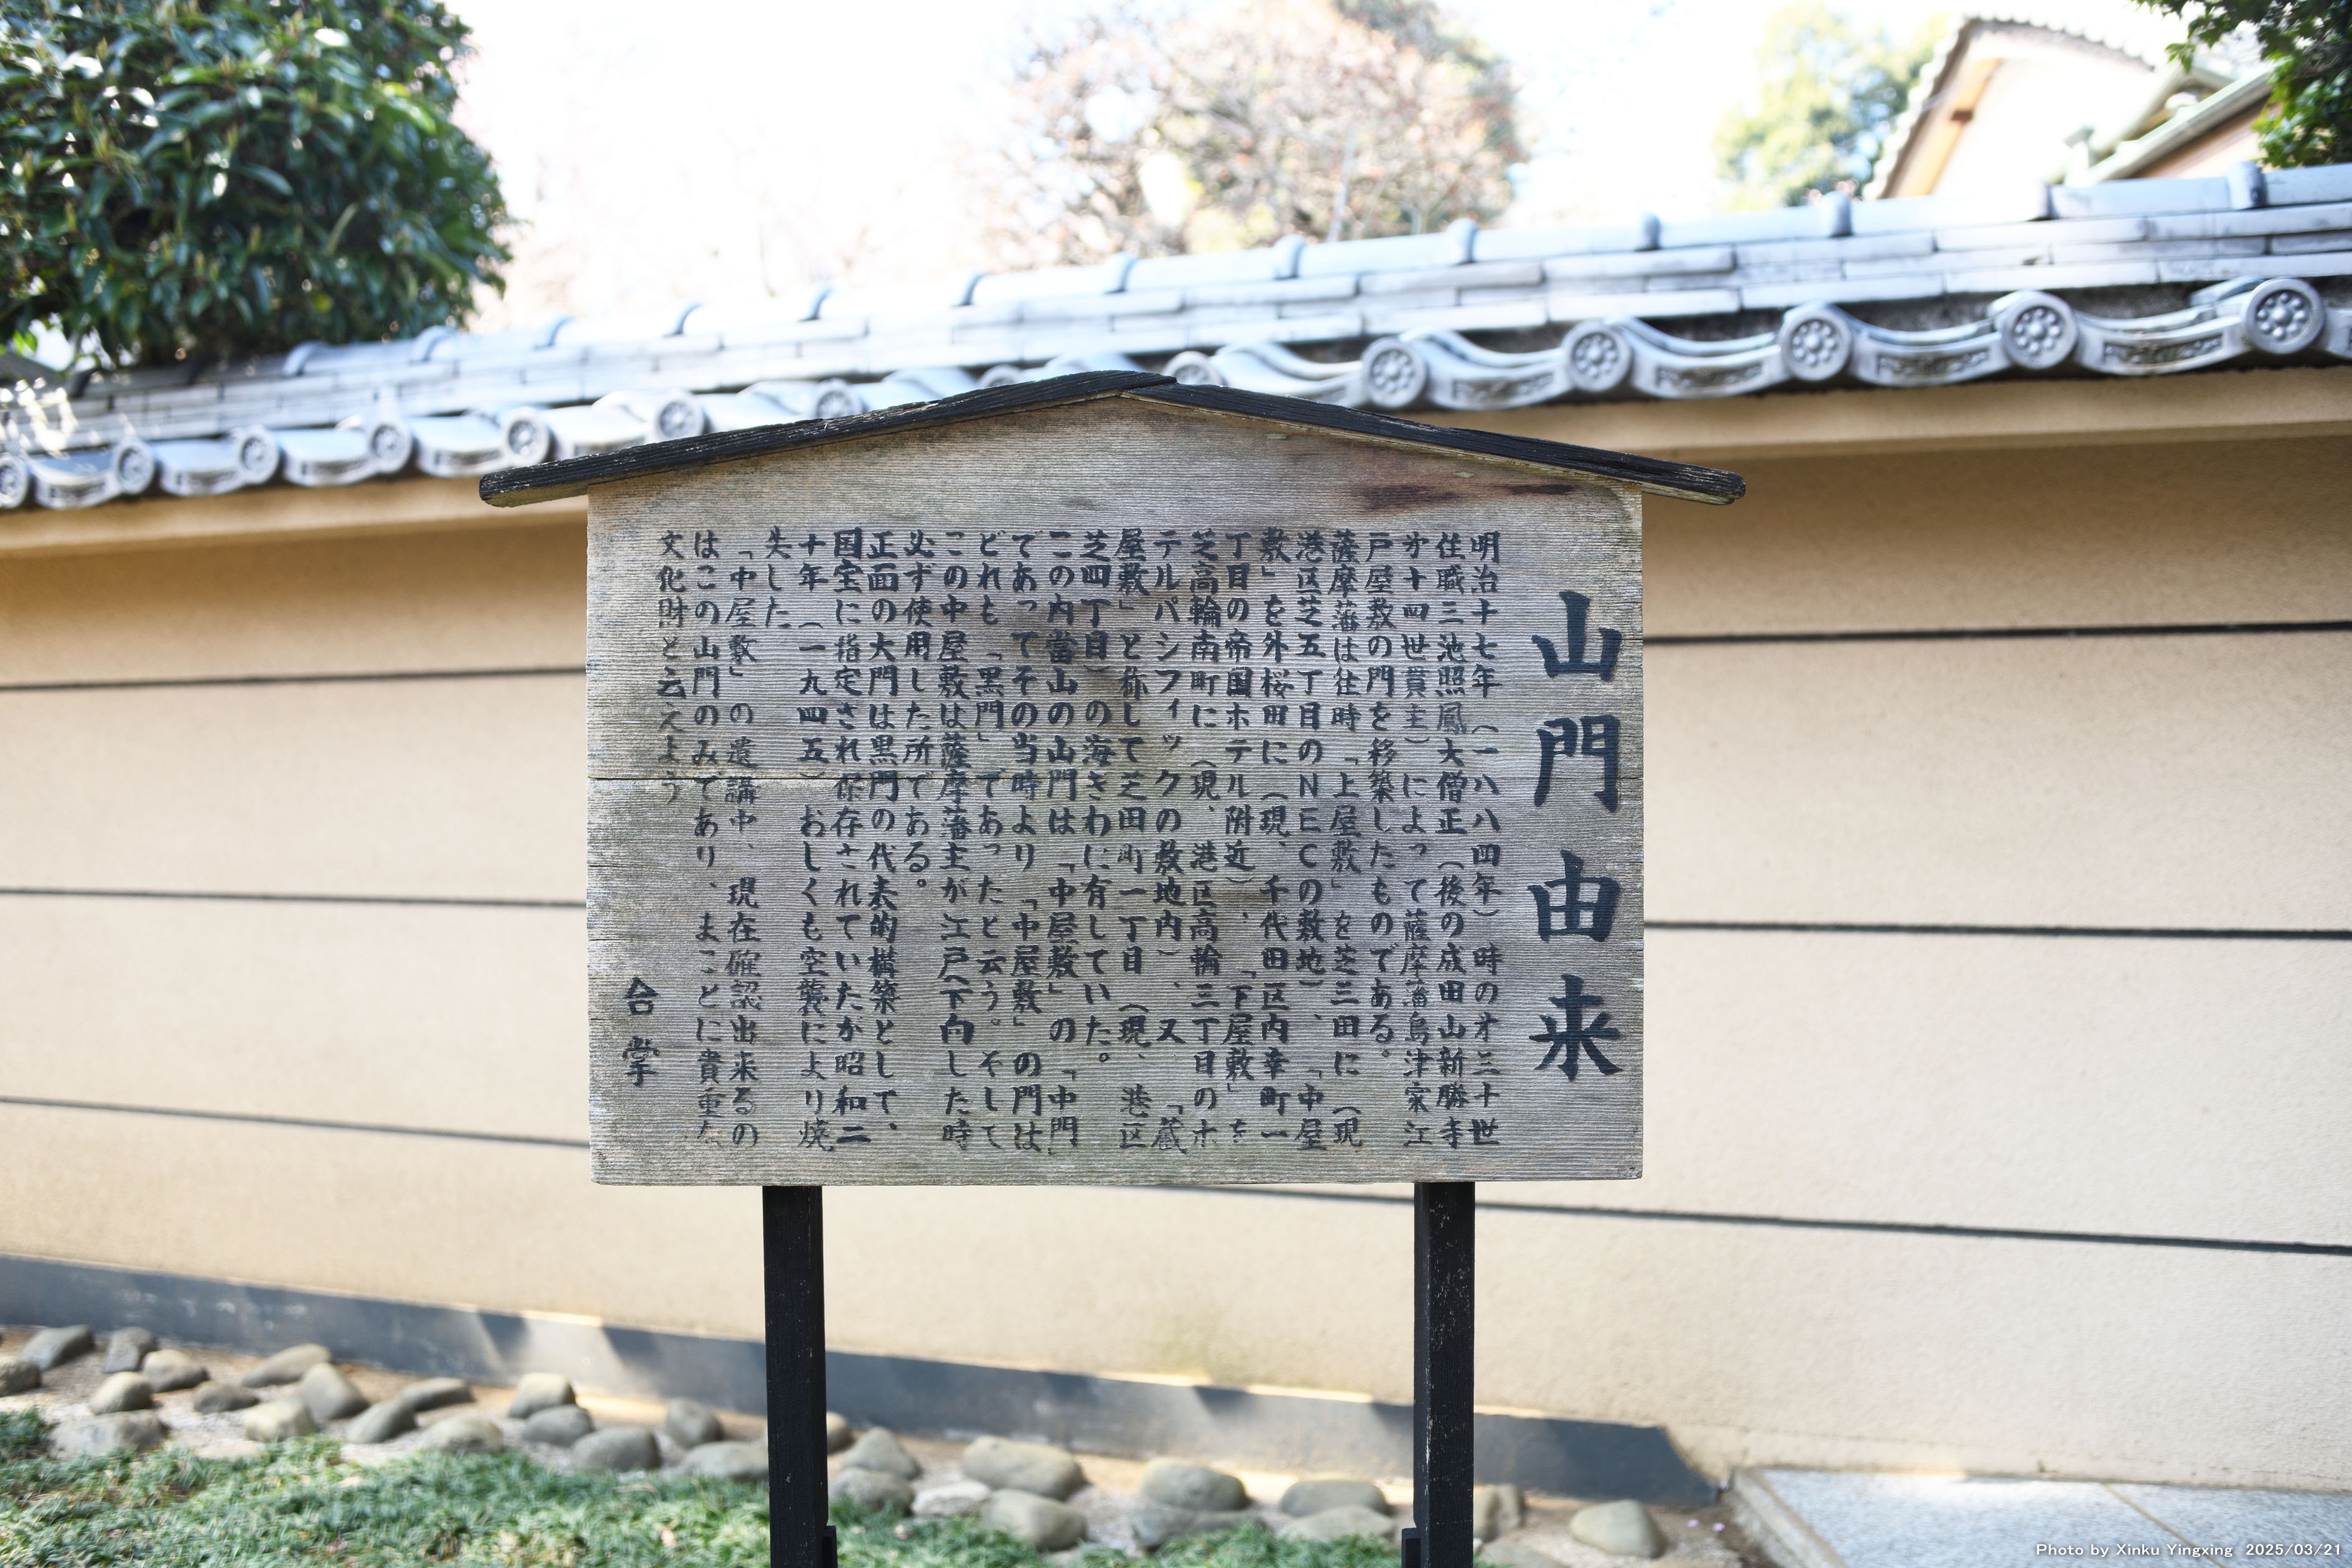 山門由来
明治十七年（一八八四年）時の才三十世
住職三池照鳳大僧正（後の成田山新勝寺
才十四世貫主）によって薩摩藩島津家江
戸屋敷の門を移築したものである。
薩摩藩は住時「上屋敷」を芝三田に（現
港区芝五丁目のＮＥＣの敷地）、「中屋
敷」を外桜田に（現、千代田区内幸町一
丁目の帝国ホテル附近）、「下屋敷」を
芝高輪南町に（現、港区高輪三丁目のホ
テルパシフィックの敷地内）、又「蔵
屋敷」と称して芝田町一丁目（現、港区
芝四丁目）の海ぎわに有していた。
この内當山の山門は「中屋敷」の「中門」
であってその当時より「中屋敷」の門は
どれも「黒門」であったと云う。そして
この中屋敷は薩摩藩主が江戸へ下向した時
必ず使用した所である。
正面の大門は黒門の代表的構築として、
国宝に指定され保存されていたが昭和二
十年（一九四五）おしくも空襲により焼
失した
「中屋敷」の遺講中、現在確認出来るの
はこの山門のみであり、まことに貴重な
文化財と云えよう
合掌
Photo by Xinku Yingxing 2025/03/21